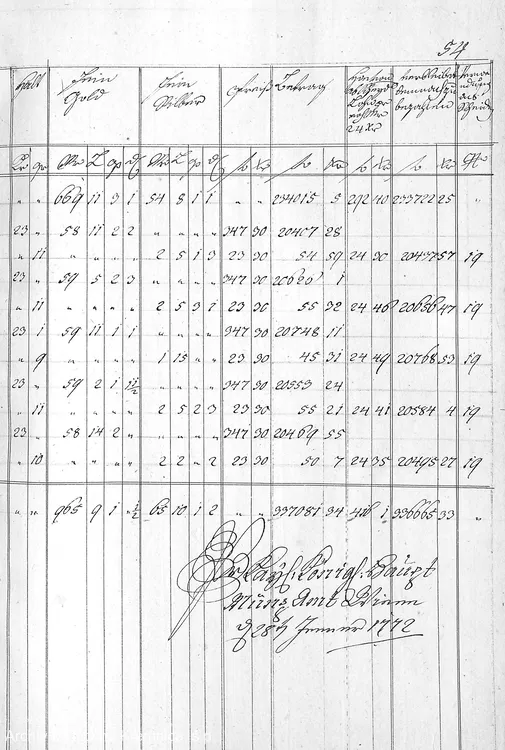 54
Halt Fein Gold Fein Silber Preiß Betrag
24 Xr
Kr gr Mr L q d Mr L q d f xr f xr f xr f xr
" " 669 11 3 1 54 8 1 1 " " 234015 5 292 40 233722 25 "
23 " 58 11 2 2 " " " " 347 30 20407 28
" 11 " " " " 2 5 1 3 23 30 54 59 24 30 20437 57 19
23 " 59 5 2 3 " " " " 347 30 20626 1
" 11 " " " " 2 5 3 1 23 30 55 32 24 46 20656 47 19
23 1 59 11 1 1 " " " " 347 30 20748 11
" 9 " " " " 1 15 " " 23 30 45 31 24 49 20768 53 19
23 " 59 2 1 1½ " " " " 347 30 20553 24
" 11 " " " " 2 5 2 3 23 30 55 21 24 41 20584 4 19
23 " 58 14 2 " " " " " 347 30 20469 55
" 10 " " " " 2 2 " 2 23 30 50 7 24 35 20495 27 19
" " 965 9 1 "½ 65 10 1 2 " " 337081 34 416 1 336665 33 "
Kayl. Königl. Haupt
Münz Amt Wienn
d 28t Jenner 1772